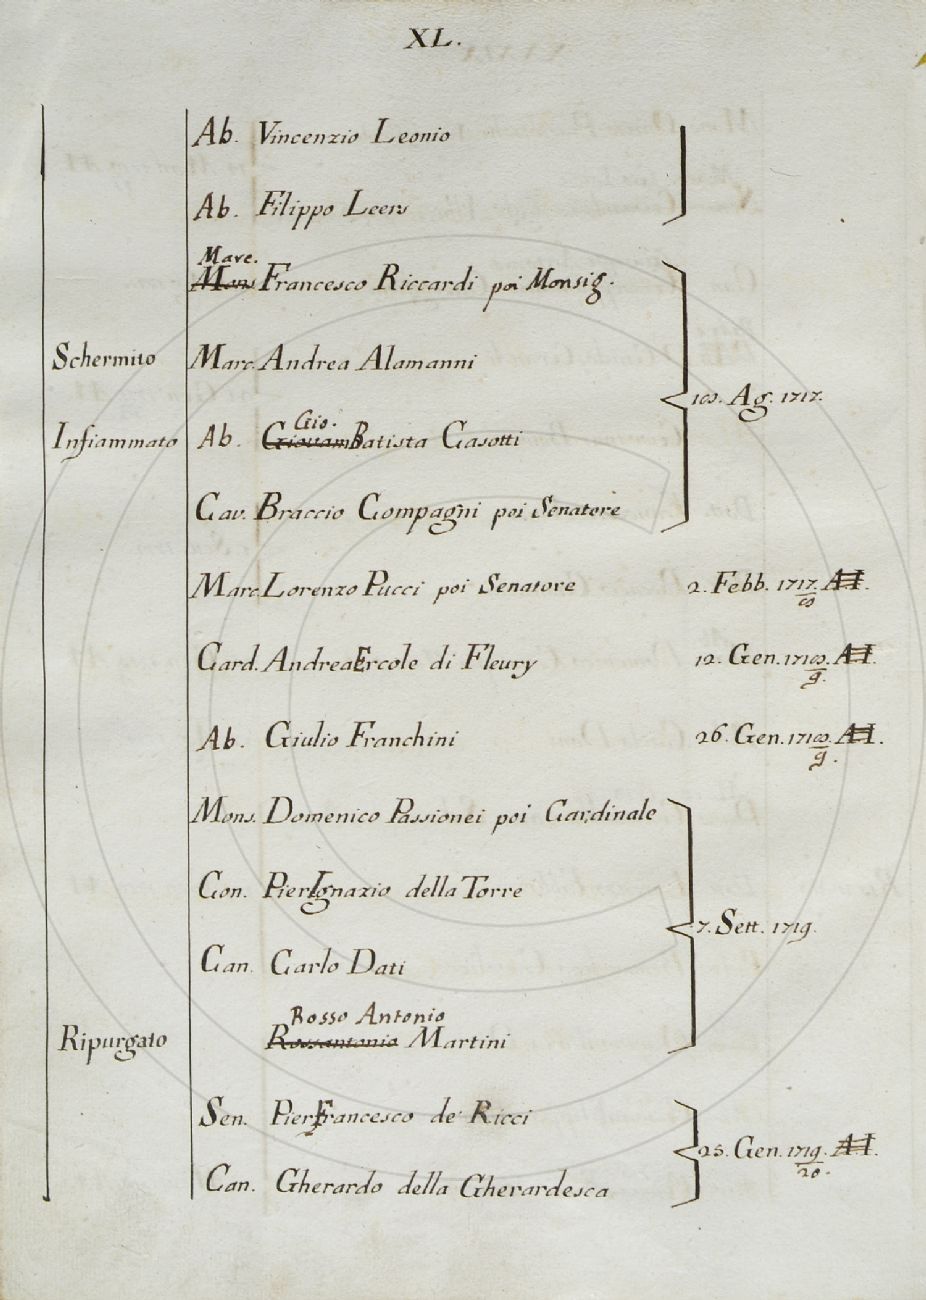 XL.
Ab. Vincenzio Leonio
Ab. Filippo Leers
Marc.
Mons Francesco Riccardi poi Monsig.
Schermito Marc. Andrea Alamanni
18. Ag. 1717.
Gio.
Infiammato Ab. GiovamBatista Casotti
Cav. Braccio Compagni poi Senatore
Marc Lorenzo Pucci poi Senatore 2. Febb. 1717. AI.
8
Card. Andrea Ercole di Fleury 12. Gen. 1718. AI.
9.
Ab. Giulio Franchini 26. Gen. 1718. AI.
9.
Mons. Domenico Passionei poi Cardinale
Con. PierIgnazio della Torre
7. Sett. 1719.
Can. Carlo Dati
Rosso Antonio
Ripurgato Rossantonio Martini
Sen. PierFrancesco de' Ricci
25. Gen. 1719. AI.
20.
Can. Gherardo della Gherardesca